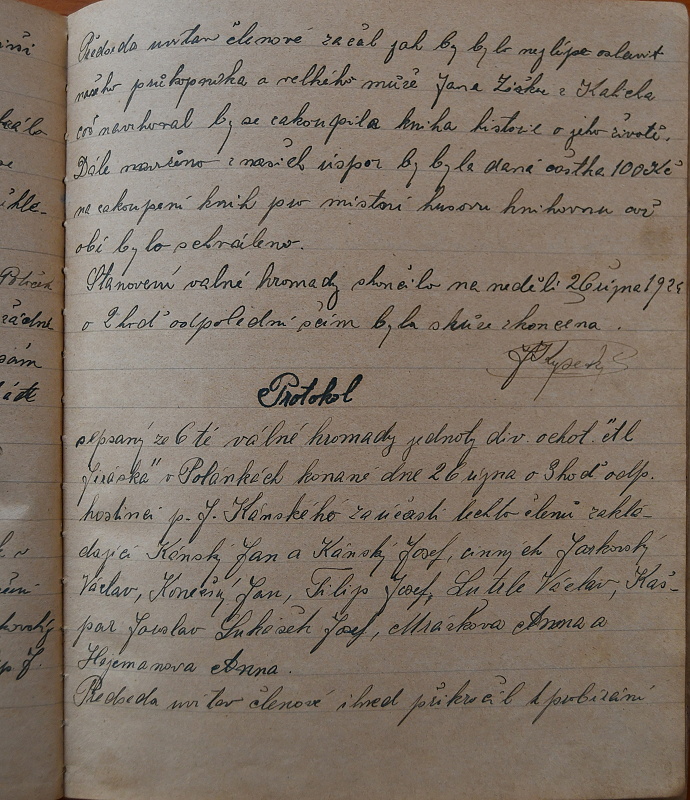 Předseda uvítav členové začal jak by bylo nejlépe oslavit
našeho průkopníka a velkého muže Jana Žižku z Kalicha
což navrhoval by se zakoupila kniha historie o jeho životě.
Dále navrženo z našich úspor by byla daná částka 100 Kč
na zakoupení knih pro místní husovu knihovnu což
obé bylo schváleno.
Stanovení valné hromady skončilo na neděli 26 října 192
o 2 hod odpolední séim byla skůze zkončena.
Protokol
sepsaný ze 6 té válné hromady jednoty div. ochot. "etl
Jiráska" v Polánkách konané dne 26 října o 3 hod odp.
hostinci p. J. Kánského za účasti techto členů zaklá-
dající Kánský Jan a Kánský Josef, činných Jarkovský
Václav, Konečný Jan, Filip Josef, Václav, Kaš-
par Jouslav Lukášek Josef, Mrázkova Anna a
Hejemanova Anna.
Předseda uvítav členové ihned přikročil k probírání